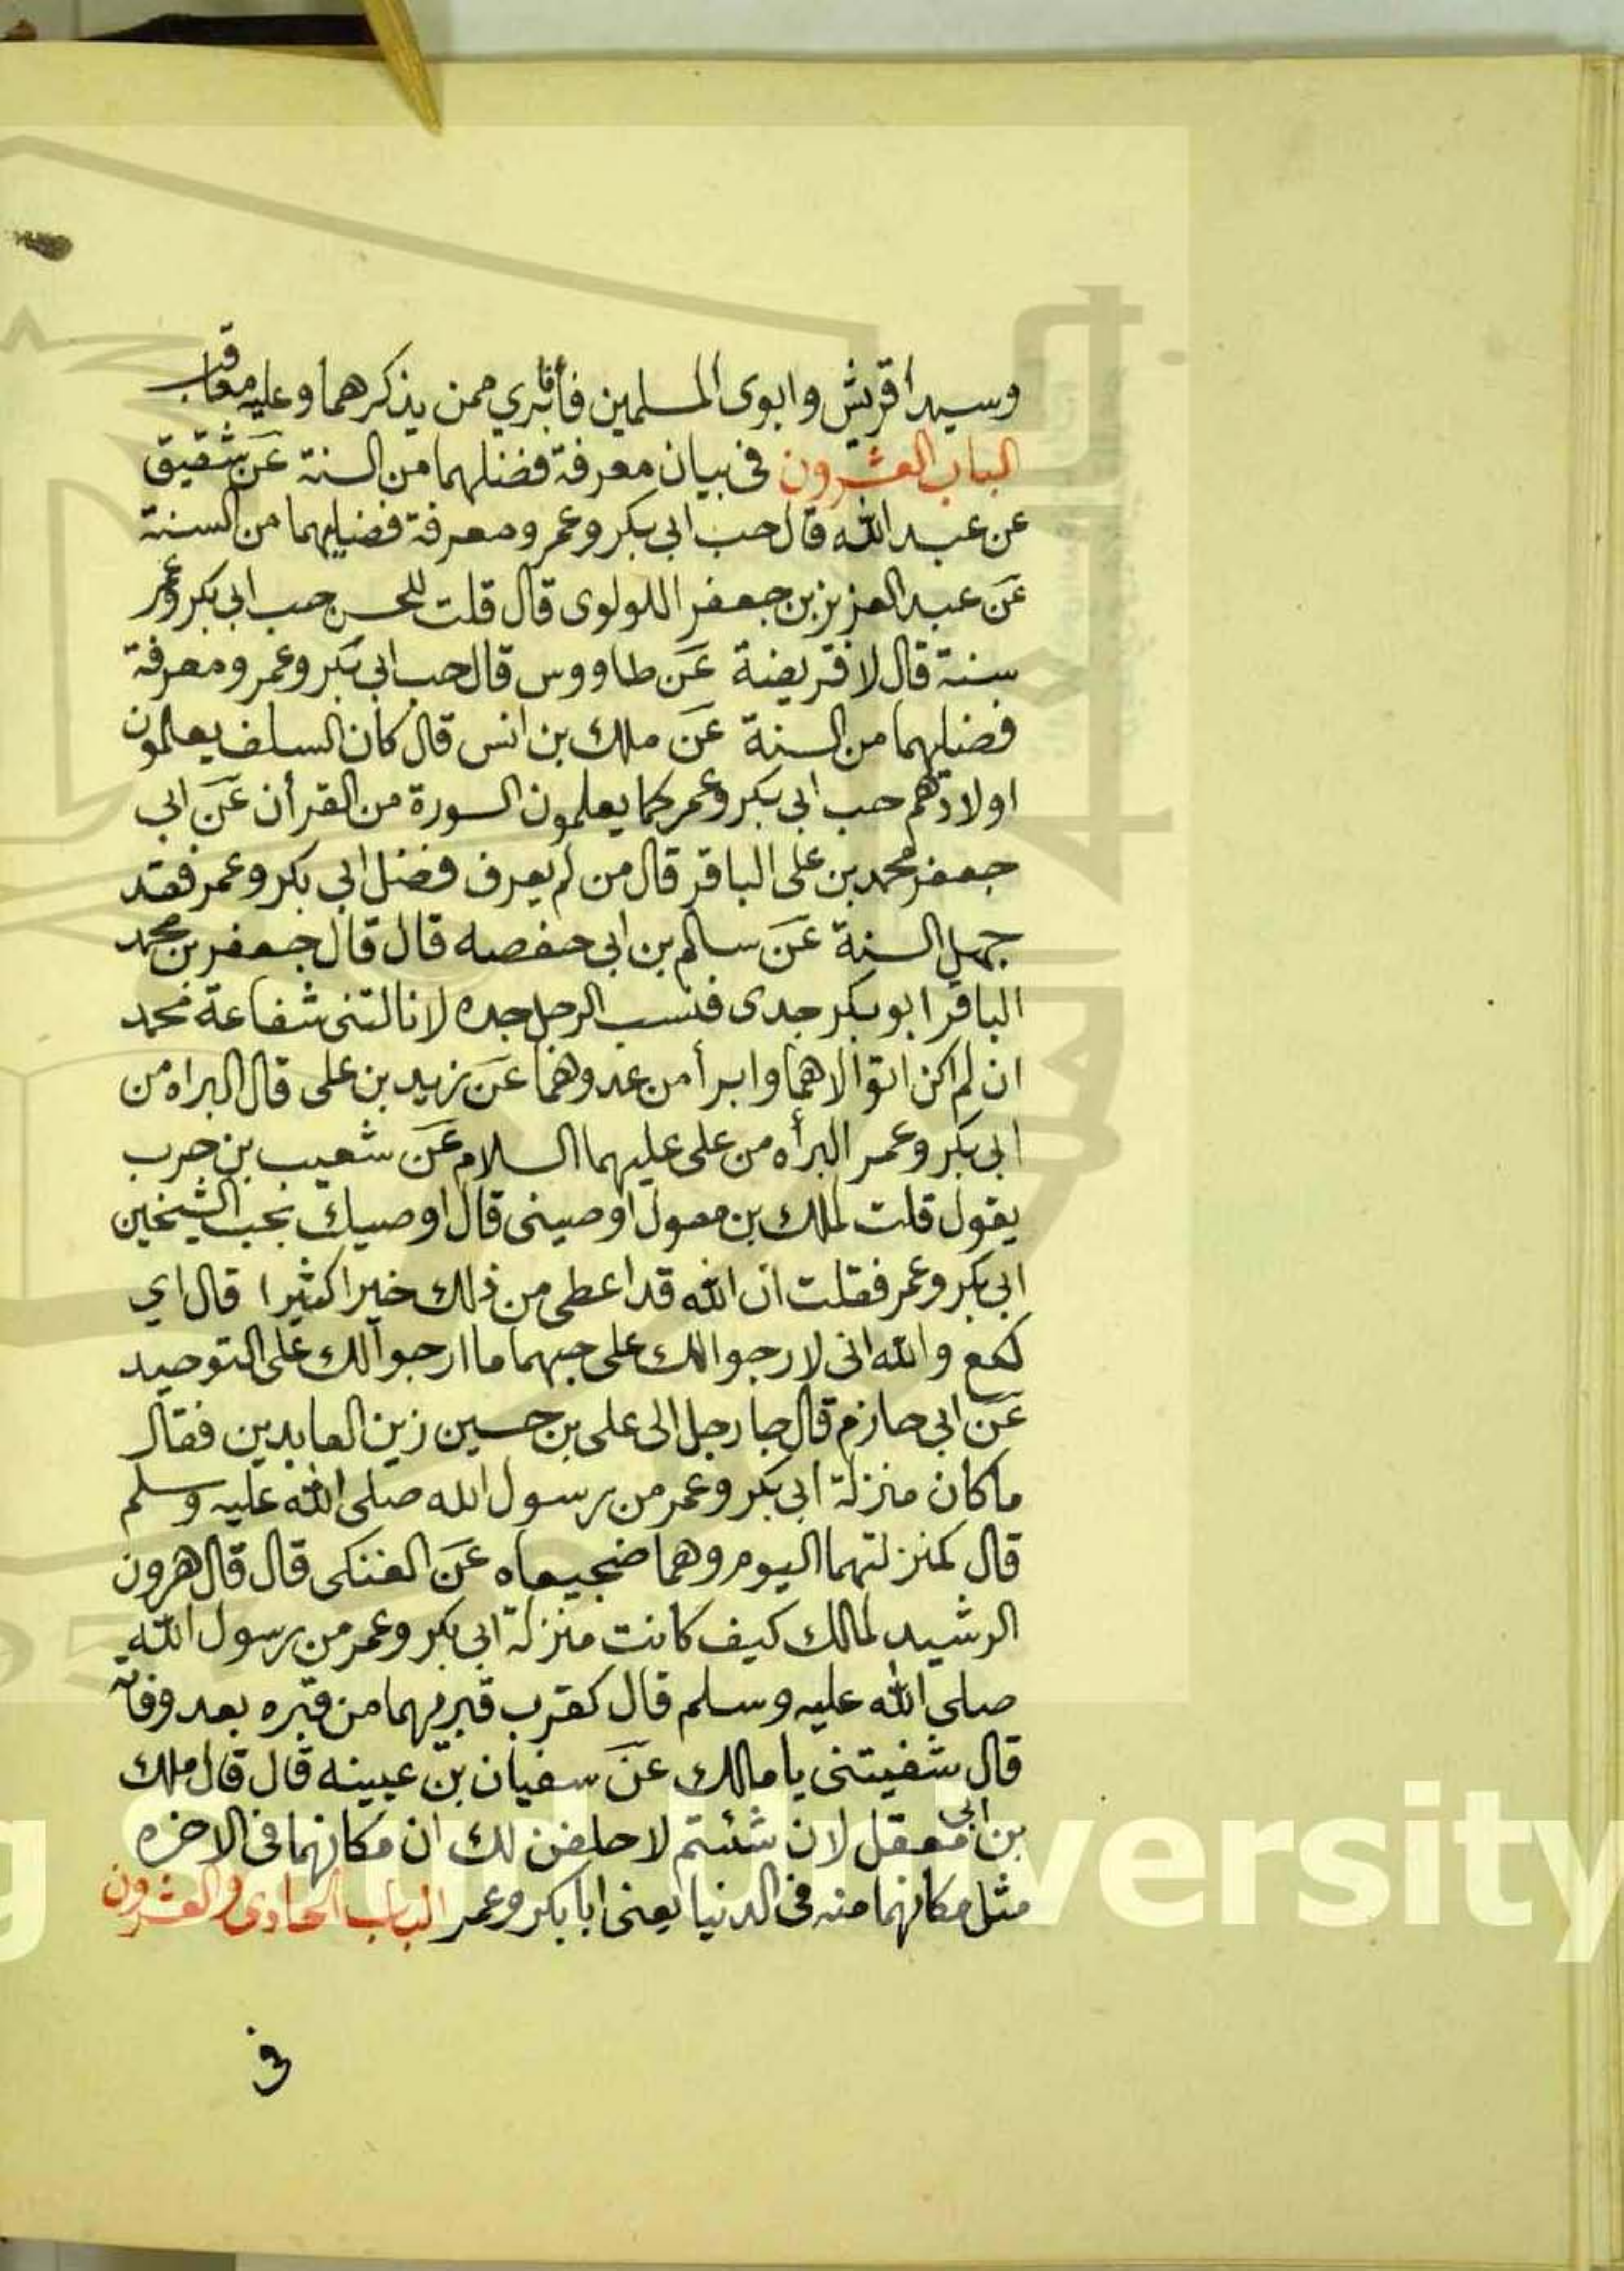 وسيدا قريش وابوى المسلمين فأنا بري ممن يذكرهما وعليه معاقب
الباب العشرون فى بيان معرفة فضلهما من السنة عن شقيق
عن عبد الله قال حب ابى بكر وعمر ومعرفة فضليهما من السنة
عن عبد العزيز بن جعفر اللولوى قال قلت للحسن حب ابى بكر وعمر
سنة قال لا فريضة عن طاووس قال حب ابى بكر وعمر ومعرفة
فضلهما من السنة عن ملك بن انس قال كان السلف يعلمون
اولادهم حب ابى بكر وعمر كما يعلمون السورة من القرأن عن ابى
جعفر محمد بن على الباقر قال من لم يعرف فضل ابى بكر وعمر فقد
جهل السنة عن سالم بن ابى حفصه قال قال جعفر بن محمد
الباقر ابو بكر جدى فيسب الرجل جده لا نالتنى شفاعة محمد
ان لم اكن اتوالاهما وابرأ من عدوهما عن زيد بن على قال البراه من
ابى بكر وعمر البرأه من على عليهما السلام عن شعيب بن حرب
يقول قلت لملك بن معول اوصينى قال اوصيك بحب الشيخين
ابى بكر وعمر فقلت ان الله قد اعطى من ذلك خيرا كثيرا قال اي
لكع والله انى لارجوا لك على حبهما ما ارجوا لك على التوحيد
عن ابى حازم قال جا رجل الى على بن حسين زين العابدين فقال
ما كان منزلة ابى بكر وعمر من رسول الله صلى الله عليه وسلم
قال كمنزلتهما اليوم وهما ضجيعاه عن العتكى قال قال هرون
الرشيد لمالك كيف كانت منزلة ابى بكر وعمر من رسول الله
صلى الله عليه وسلم قال كقرب قبريهما من قبره بعد وفاته
قال شفيتنى يا مالك عن سفيان بن عيينه قال قال ملك
بن ابى معقل لان شئتم لاحلفن لك ان مكانهما فى الاخره
مثل مكانهما منه فى الدنيا يعنى ابا بكر وعمر الباب الحادى والعشرون
فى
g Saud University